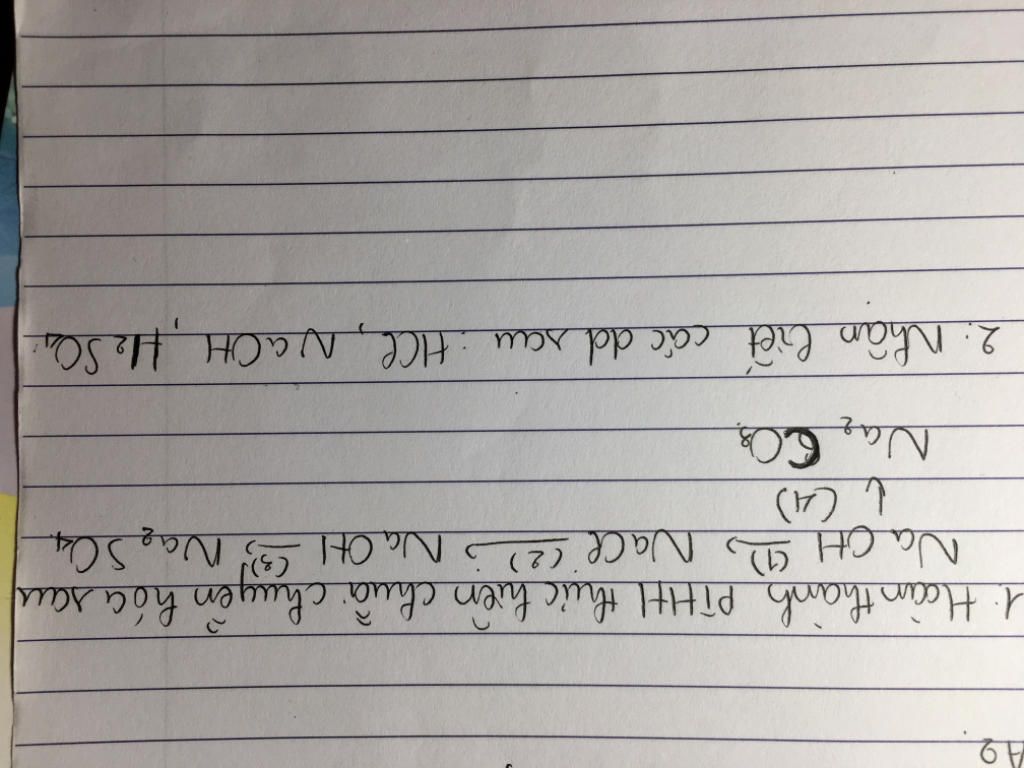 A2
1. Hoàn thành PTHH thực hiện chuỗi chuyển hóa sau
NaOH (1)→ NaCl (2)→ NaOH (3)→ Na2SO4
↓ (4)
Na2CO3
2. Nhận biết các dd sau: HCl, NaOH, H2SO4